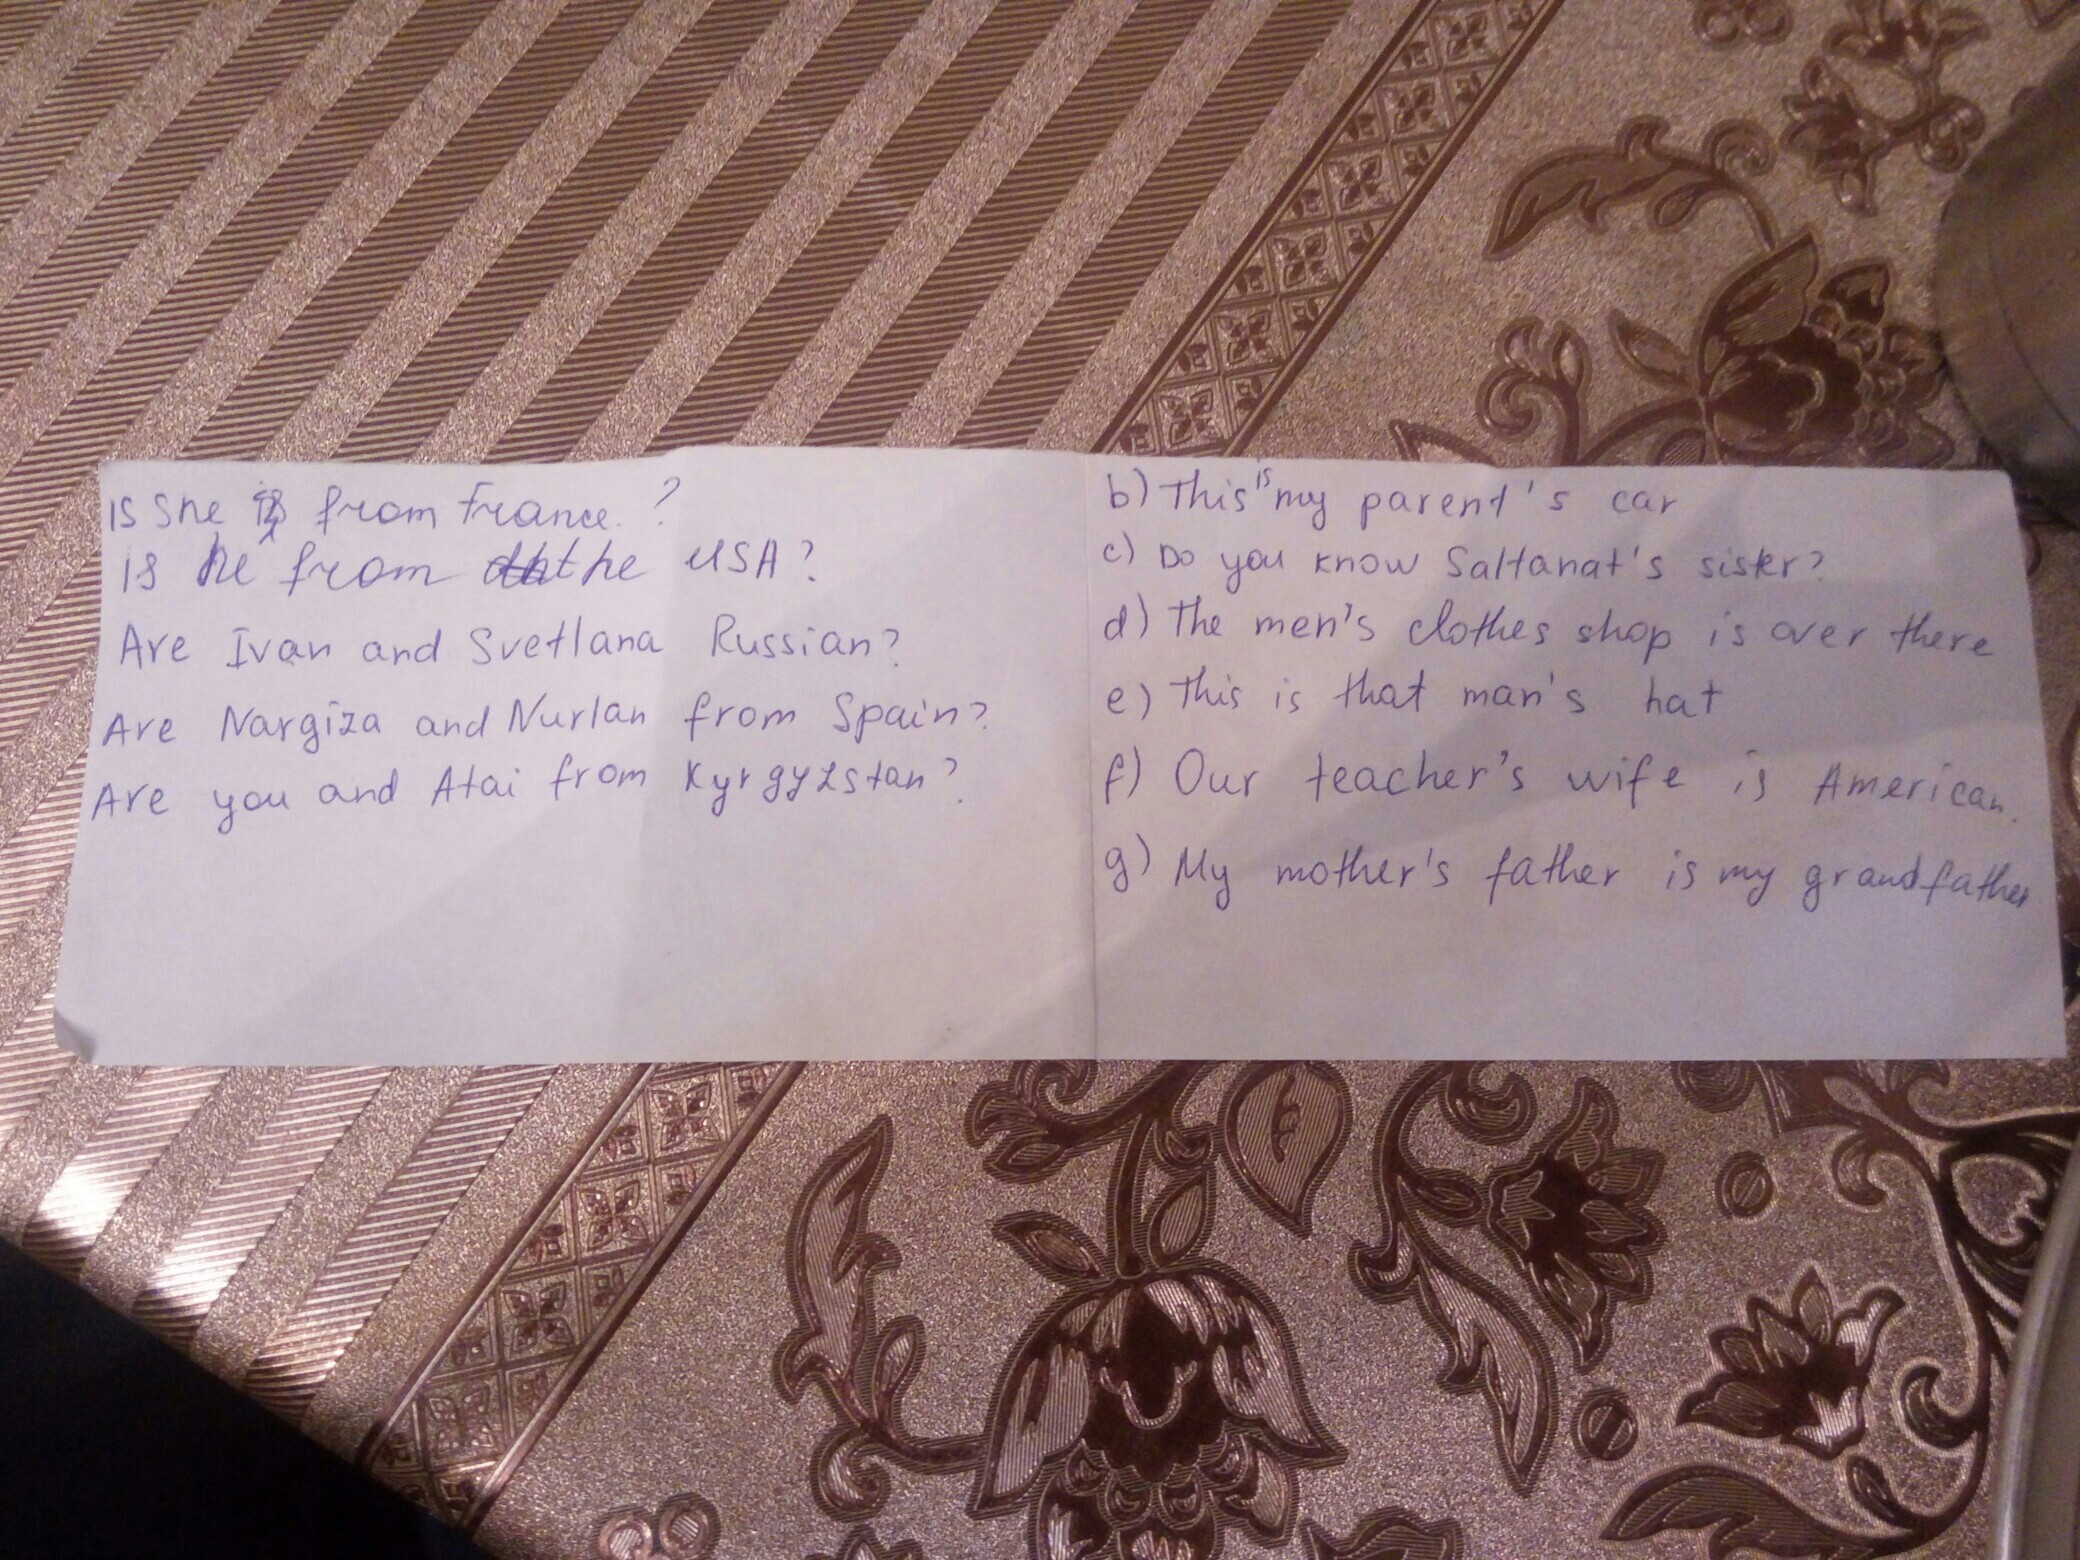 Is she from France. ?
Is he from the USA?
Are Ivan and Svetlana Russian?
Are Nargiza and Nurlan from Spain?
Are you and Atai from Kyrgyzstan?
b) This is my parent's car
c) Do you know Saltanat's sister?
d) The men's clothes shop is over there
e) This is that man's hat
f) Our teacher's wife is American.
g) My mother's father is my grandfather